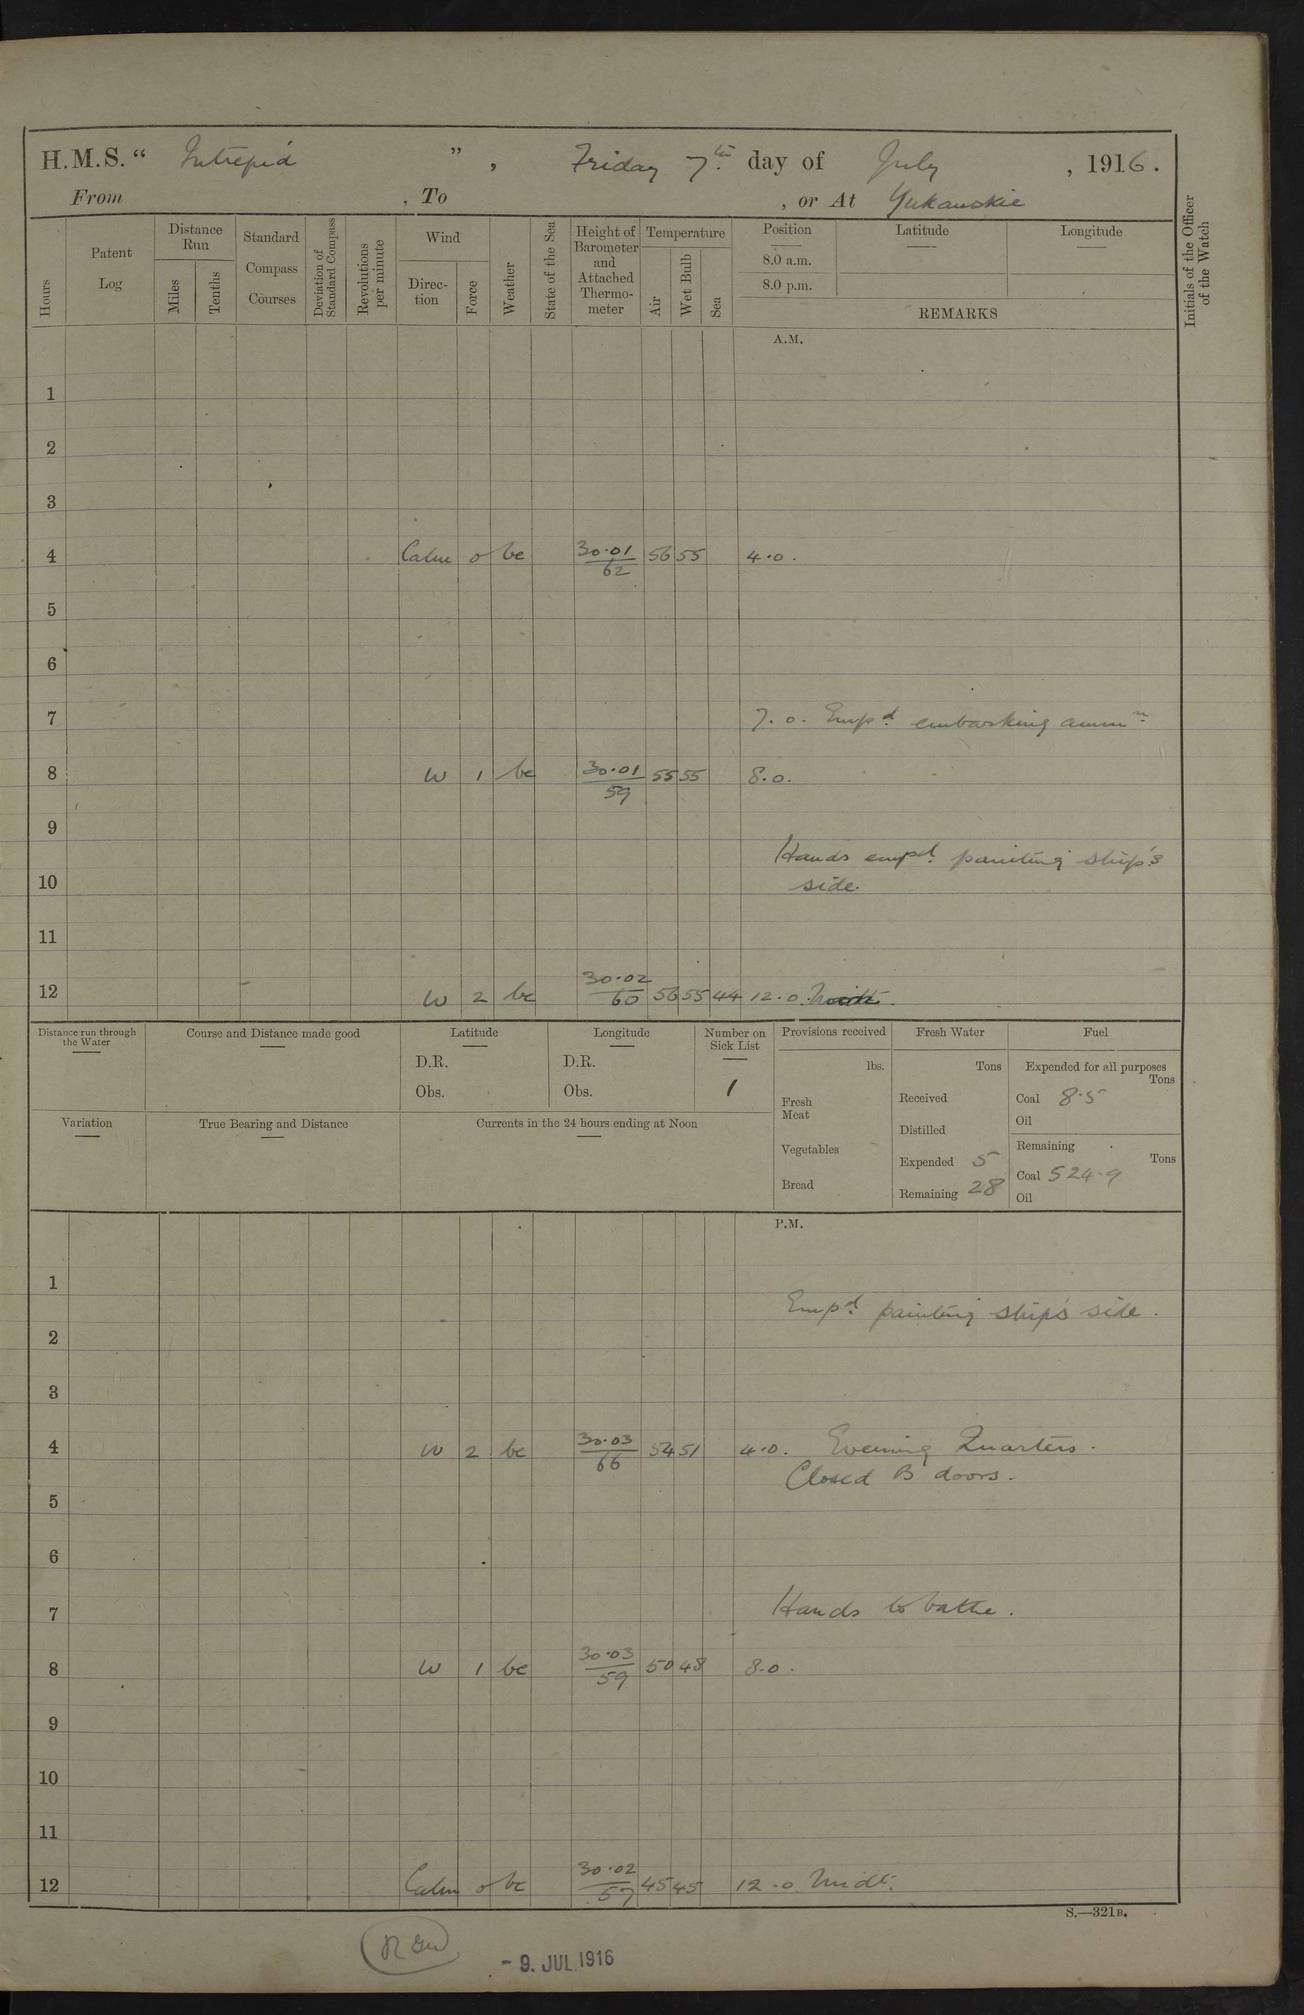 H.M.S. “ Intrepid ” , Friday 7th day of July , 1916.
From , To , or At Yukanskie
Hours
Patent Log
Distance Run
Miles
Tenths
Standard Compass Courses
Deviation of Standard Compass
Revolutions per minute
Wind
Direc-tion
Force
Weather
State of the Sea
Height of Barometer and Attached Thermo-meter
Temperature
Air
Wet Bulb
Sea
Position
8.0 a.m.
8.0 p.m.
Latitude
Longitude
REMARKS
Initials of the Officer of the Watch
A.M.
1
2
3
4 Calm 0 bc 30·01/62 56 55 4.0.
5
6
7 7.0. Empd. embarking ammn.
8 W 1 bc 30·01/59 55 55 8.0.
9
Hands empd. painting ship's
10 side.
11
12 W 2 bc 30·02/60 56 55 44 12.0.
Distance run through the Water
Course and Distance made good
Latitude
D.R.
Obs.
Longitude
D.R.
Obs.
Number on Sick List
1
Variation
True Bearing and Distance
Currents in the 24 hours ending at Noon
Provisions received
lbs.
Fresh Meat
Vegetables
Bread
Fresh Water
Tons
Received
Distilled
Expended 5
Remaining 28
Fuel
Expended for all purposes
Tons
Coal 8·5
Oil
Remaining
Tons
Coal 524·9
Oil
P.M.
1
Empd. painting ship's side.
2
3
4 W 2 bc 30·03/66 54 51 4.0. Evening Quarters.
Closed B doors.
5
6
7 Hands to bathe.
8 W 1 bc 30·03/59 50 48 8.0.
9
10
11
12 Calm 0 bc 30·02/57 45 45 12.0 Midt.
S.—321B.
- 9. JUL 1916